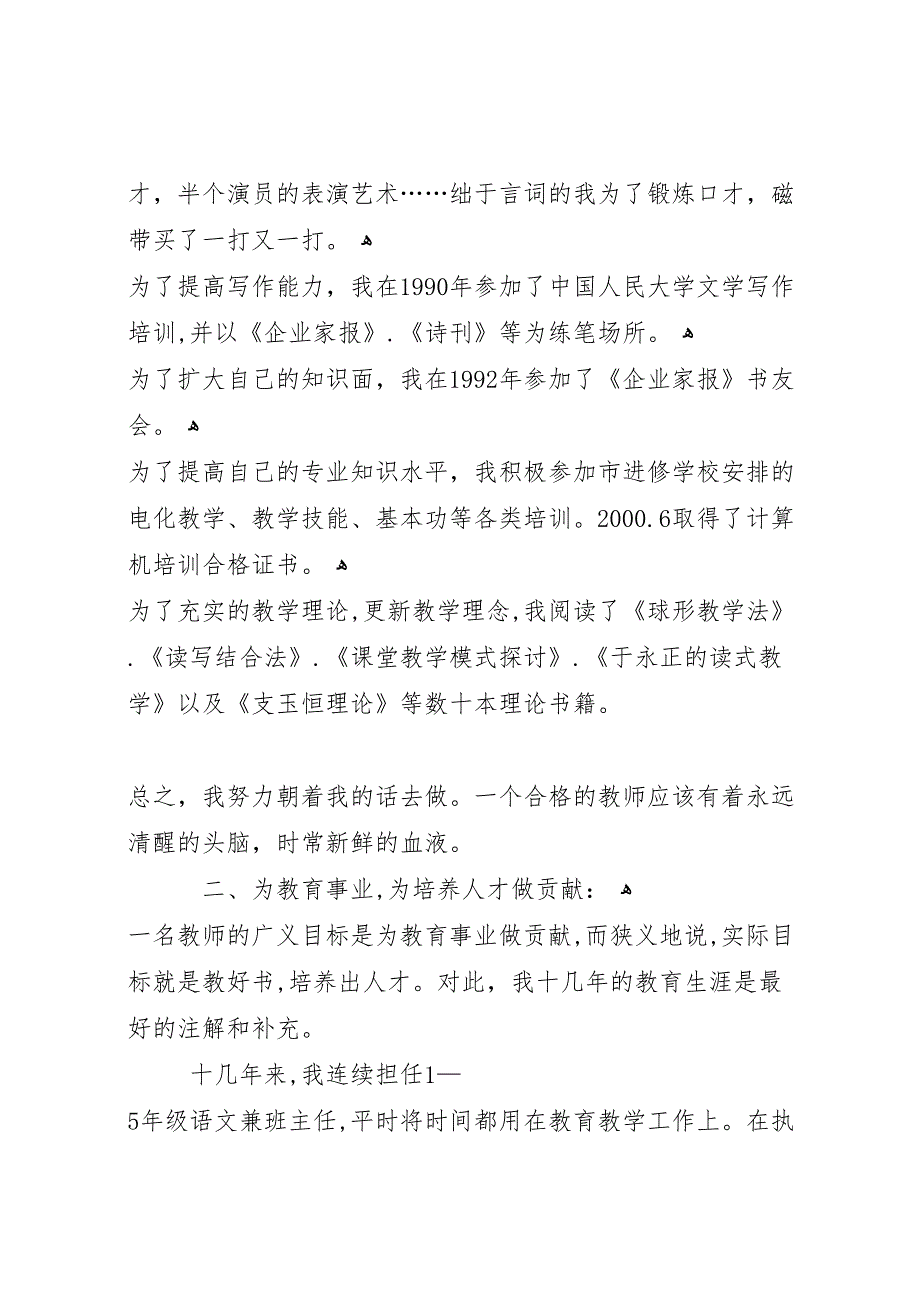 才，半个演员的表演艺术……绌于言词的我为了锻炼口才，磁
带买了一打又一打。 ﻫ
为了提高写作能力，我在1990年参加了中国人民大学文学写作
培训,并以《企业家报》.《诗刊》等为练笔场所。 ﻫ
为了扩大自己的知识面，我在1992年参加了《企业家报》书友
会。 ﻫ
为了提高自己的专业知识水平，我积极参加市进修学校安排的
电化教学、教学技能、基本功等各类培训。2000.6取得了计算
机培训合格证书。 ﻫ
为了充实的教学理论,更新教学理念,我阅读了《球形教学法》
.《读写结合法》.《课堂教学模式探讨》.《于永正的读式教
学》以及《支玉恒理论》等数十本理论书籍。
总之，我努力朝着我的话去做。一个合格的教师应该有着永远
清醒的头脑，时常新鲜的血液。
二、为教育事业,为培养人才做贡献： ﻫ
一名教师的广义目标是为教育事业做贡献,而狭义地说,实际目
标就是教好书,培养出人才。对此，我十几年的教育生涯是最
好的注解和补充。
十几年来,我连续担任1—
5年级语文兼班主任,平时将时间都用在教育教学工作上。在执